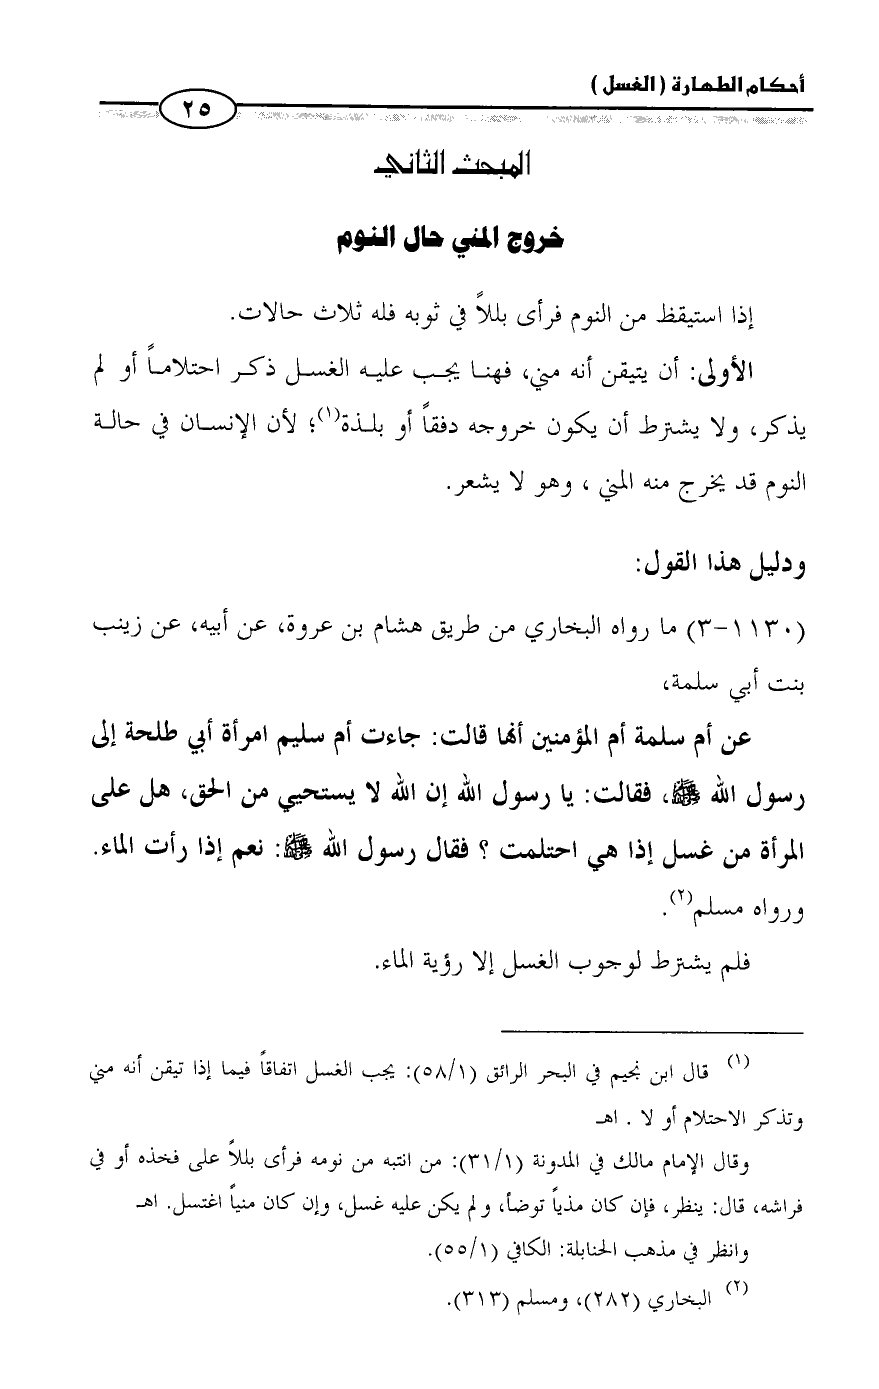 أحكام الطهارة ( الغسل )
٢٥
المبحث الثاني
خروج المني حال النوم
إذا استيقظ من النوم فرأى بللاً في ثوبه فله ثلاث حالات.
الأولى: أن يتيقن أنه مني، فهنا يجب عليه الغسل ذكر احتلاماً أو لم
يذكر، ولا يشترط أن يكون خروجه دفقاً أو بلذة(١)؛ لأن الإنسان في حالة
النوم قد يخرج منه المني ، وهو لا يشعر.
ودليل هذا القول:
(١١٣٠-٣) ما رواه البخاري من طريق هشام بن عروة، عن أبيه، عن زينب
بنت أبي سلمة،
عن أم سلمة أم المؤمنين أنها قالت: جاءت أم سليم امرأة أبي طلحة إلى
رسول الله ﷺ، فقالت: يا رسول الله إن الله لا يستحيي من الحق، هل على
المرأة من غسل إذا هي احتلمت ؟ فقال رسول الله ﷺ: نعم إذا رأت الماء.
ورواه مسلم(٢).
فلم يشترط لوجوب الغسل إلا رؤية الماء.
(١) قال ابن نجيم في البحر الرائق (٥٨/١): يجب الغسل اتفاقاً فيما إذا تيقن أنه مني
وتذكر الاحتلام أو لا . اهـ
وقال الإمام مالك في المدونة (٣١/١): من انتبه من نومه فرأى بللاً على فخذه أو في
فراشه، قال: ينظر، فإن كان مذياً توضأ، ولم يكن عليه غسل، وإن كان منياً اغتسل. اهـ
وانظر في مذهب الحنابلة: الكافي (٥٥/١).
(٢) البخاري (٢٨٢)، ومسلم (٣١٣).